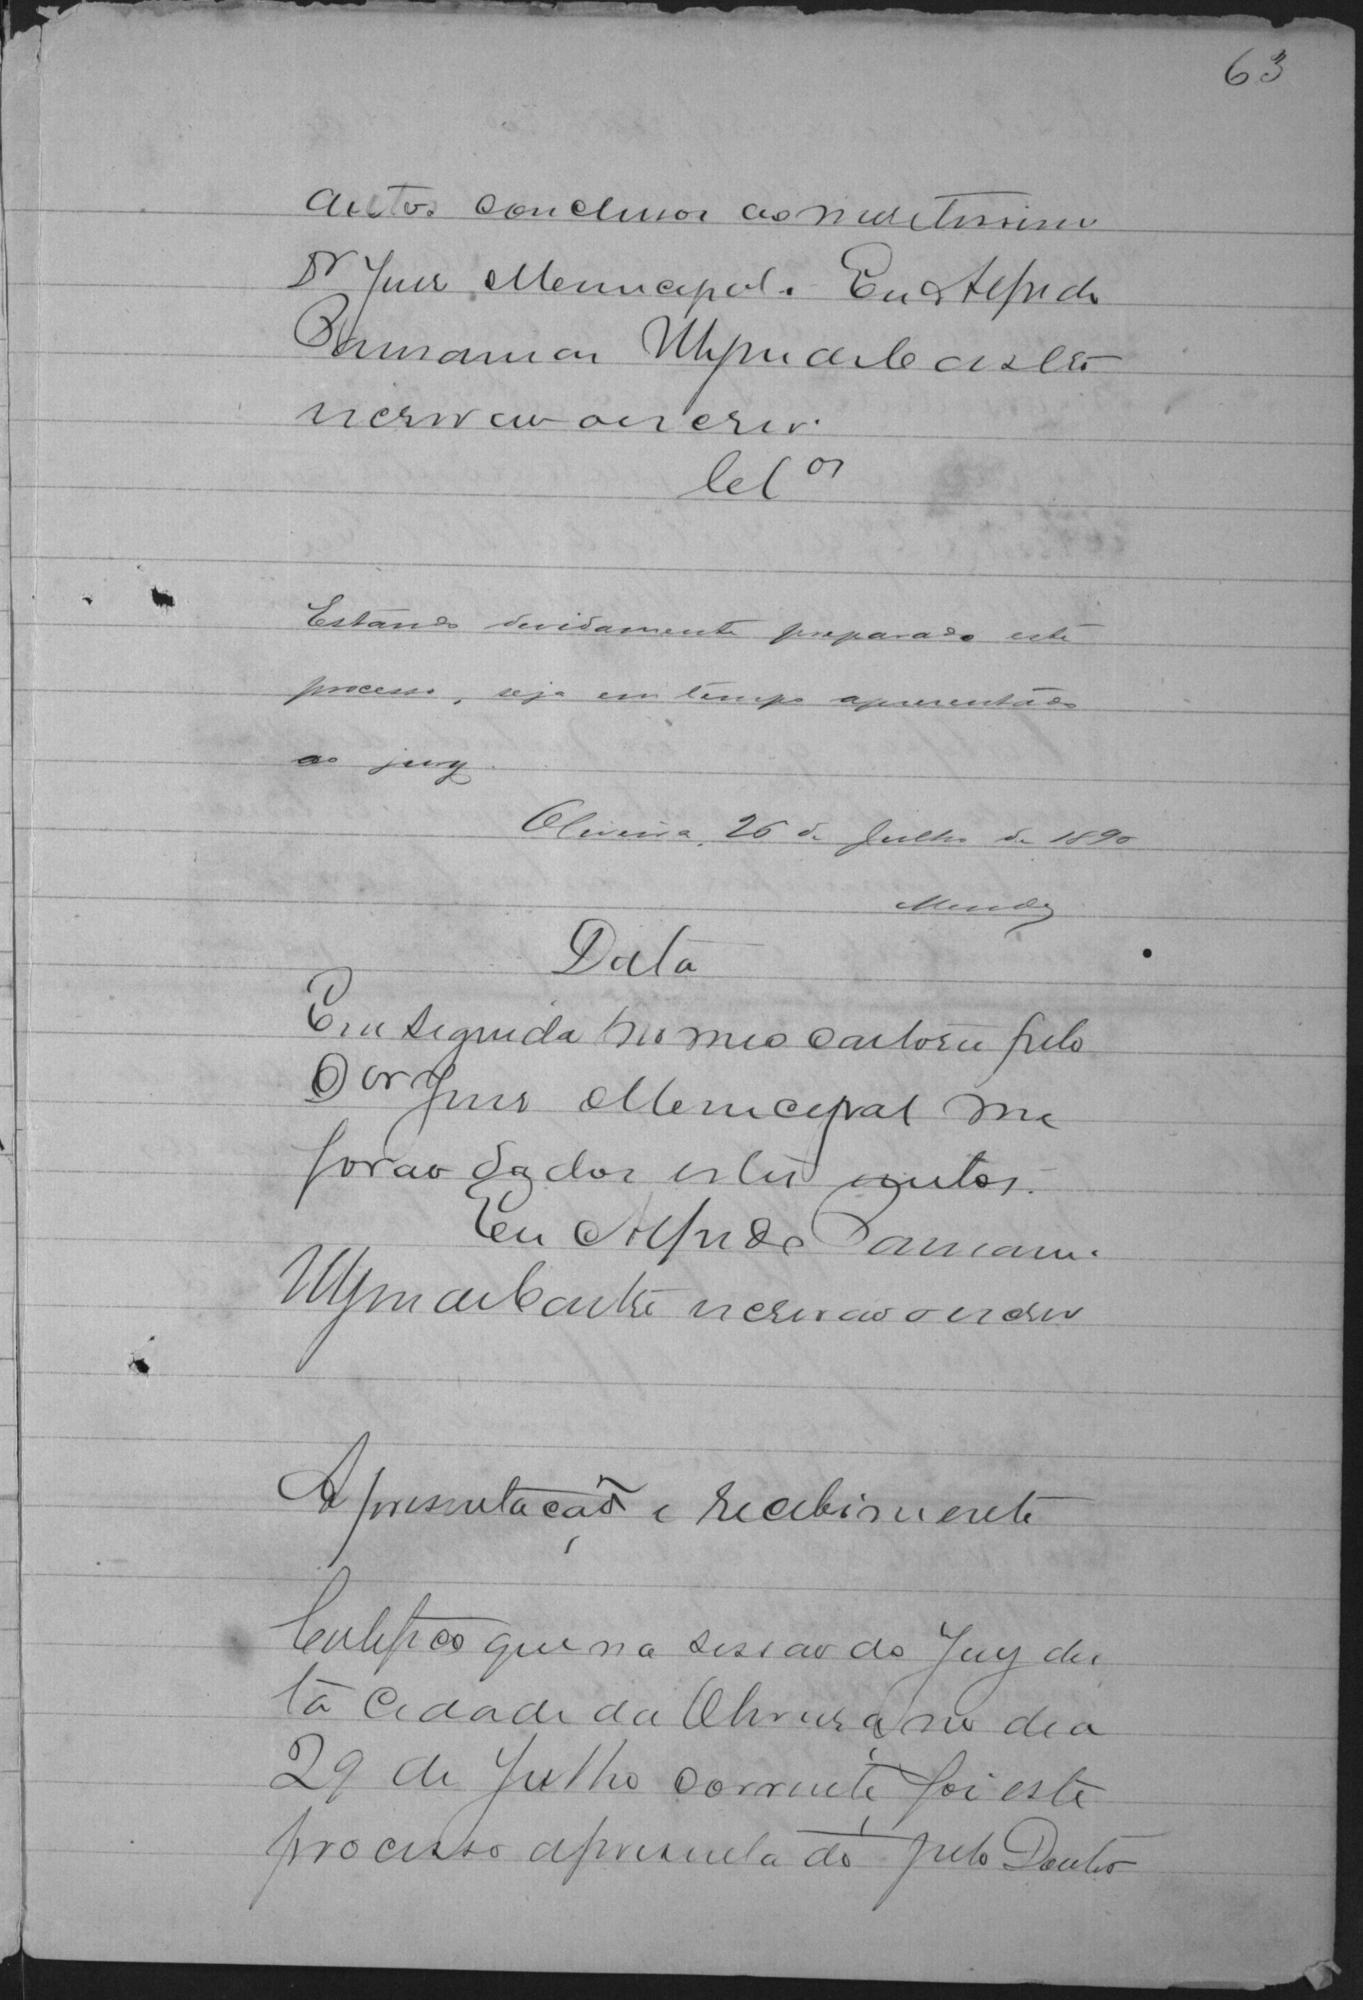 63
autos conclusos ao meretissimo
Dr Juis Municipal. Eu Alfredo
Castro
escrivão o escrv.
Clos
Estando devidamente preparado este
processo, seja em tempo apresentado
ao jury.
Oliveira, 26 de Julho de 1890
Mendes
Data
Em seguida no meo cartorio pelo
Dor Juis Municipal me
forão dados estes autos.
Eu Alfredo
de Castro escrivão o escrv
Apresentação e recebimento
Certifico que na sessão do Jury des
ta Cidade da Oliveira, no dia
29 de Julho corrente, foi este
processo apresentado pelo Doutor